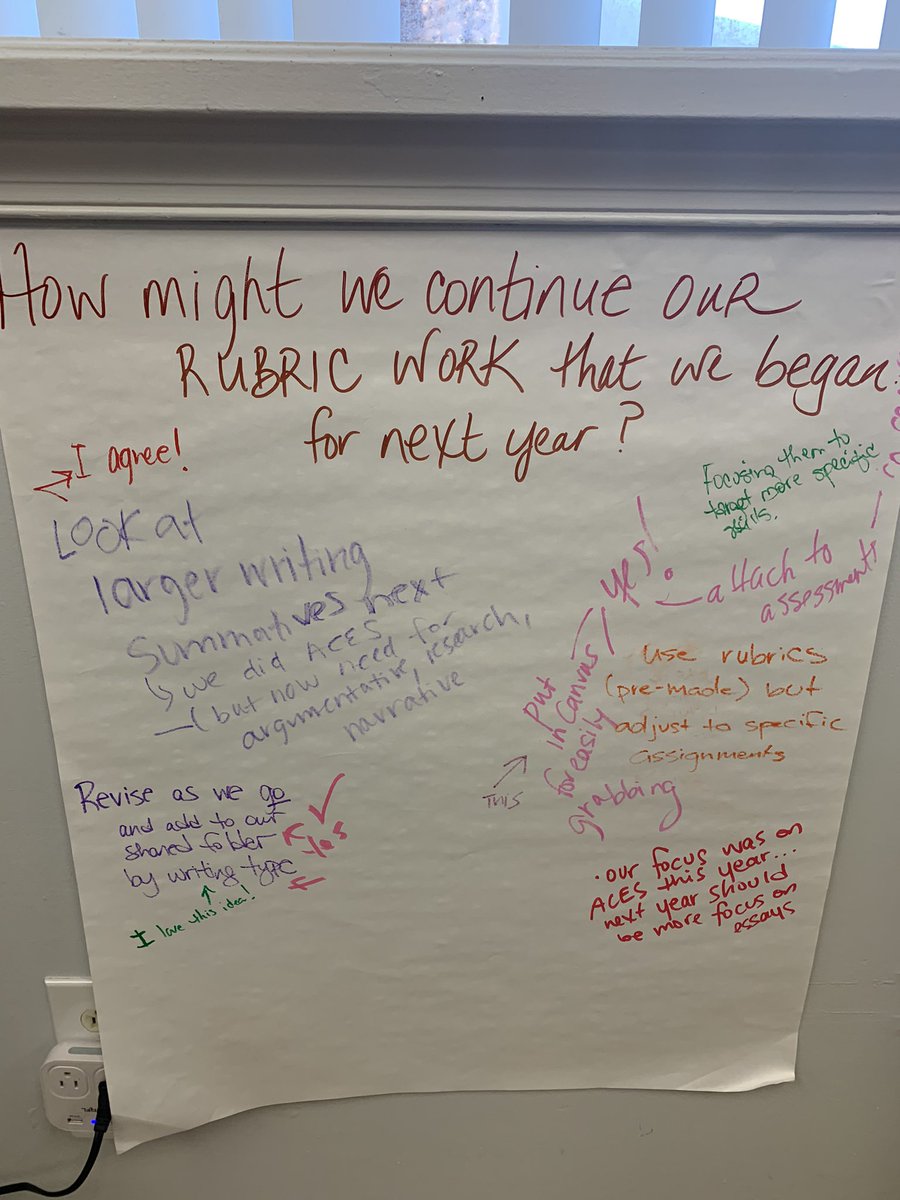 How might we continue OUR
RUBRIC WORK that we began
for next year?
I agree!
Look at
larger writing
Summatives next
we did ACES
(but now need for
argumentative, research,
narrative
Revise as we go
and add to our
shared folder
by writing type
Yes
I love this idea!
Focusing them to
target more specific
skills.
Yes!
attach to
assessments
put
in Canvas
for easily
grabbing
THIS
use rubrics
(pre-made) but
adjust to specific
assignments
. our focus was on
ACES this year...
next year should
be more focus on
essays